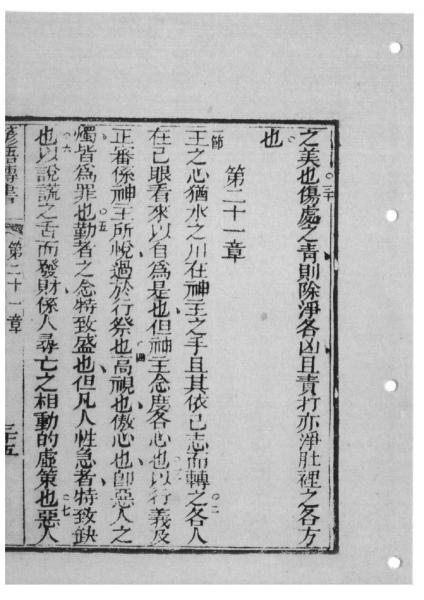 之美也○三十傷處之青則除淨各凶且責打亦淨肚裡之各方
也
第二十一章
一節王之心猶水之川在神主之手且其依己志而轉之○二各人
在己眼看來以自爲是也但神主念度各心也○三以行義及
正審係神主所悅過於行祭也○四高視也傲心也卽惡人之
燭皆爲罪也○五勤者之念特致盛也但凡人性急者特致缺
也○六以說謊之舌而發財係人尋亡之相動的虛策也○七惡人
諺語傳書 第二十一章 三十五